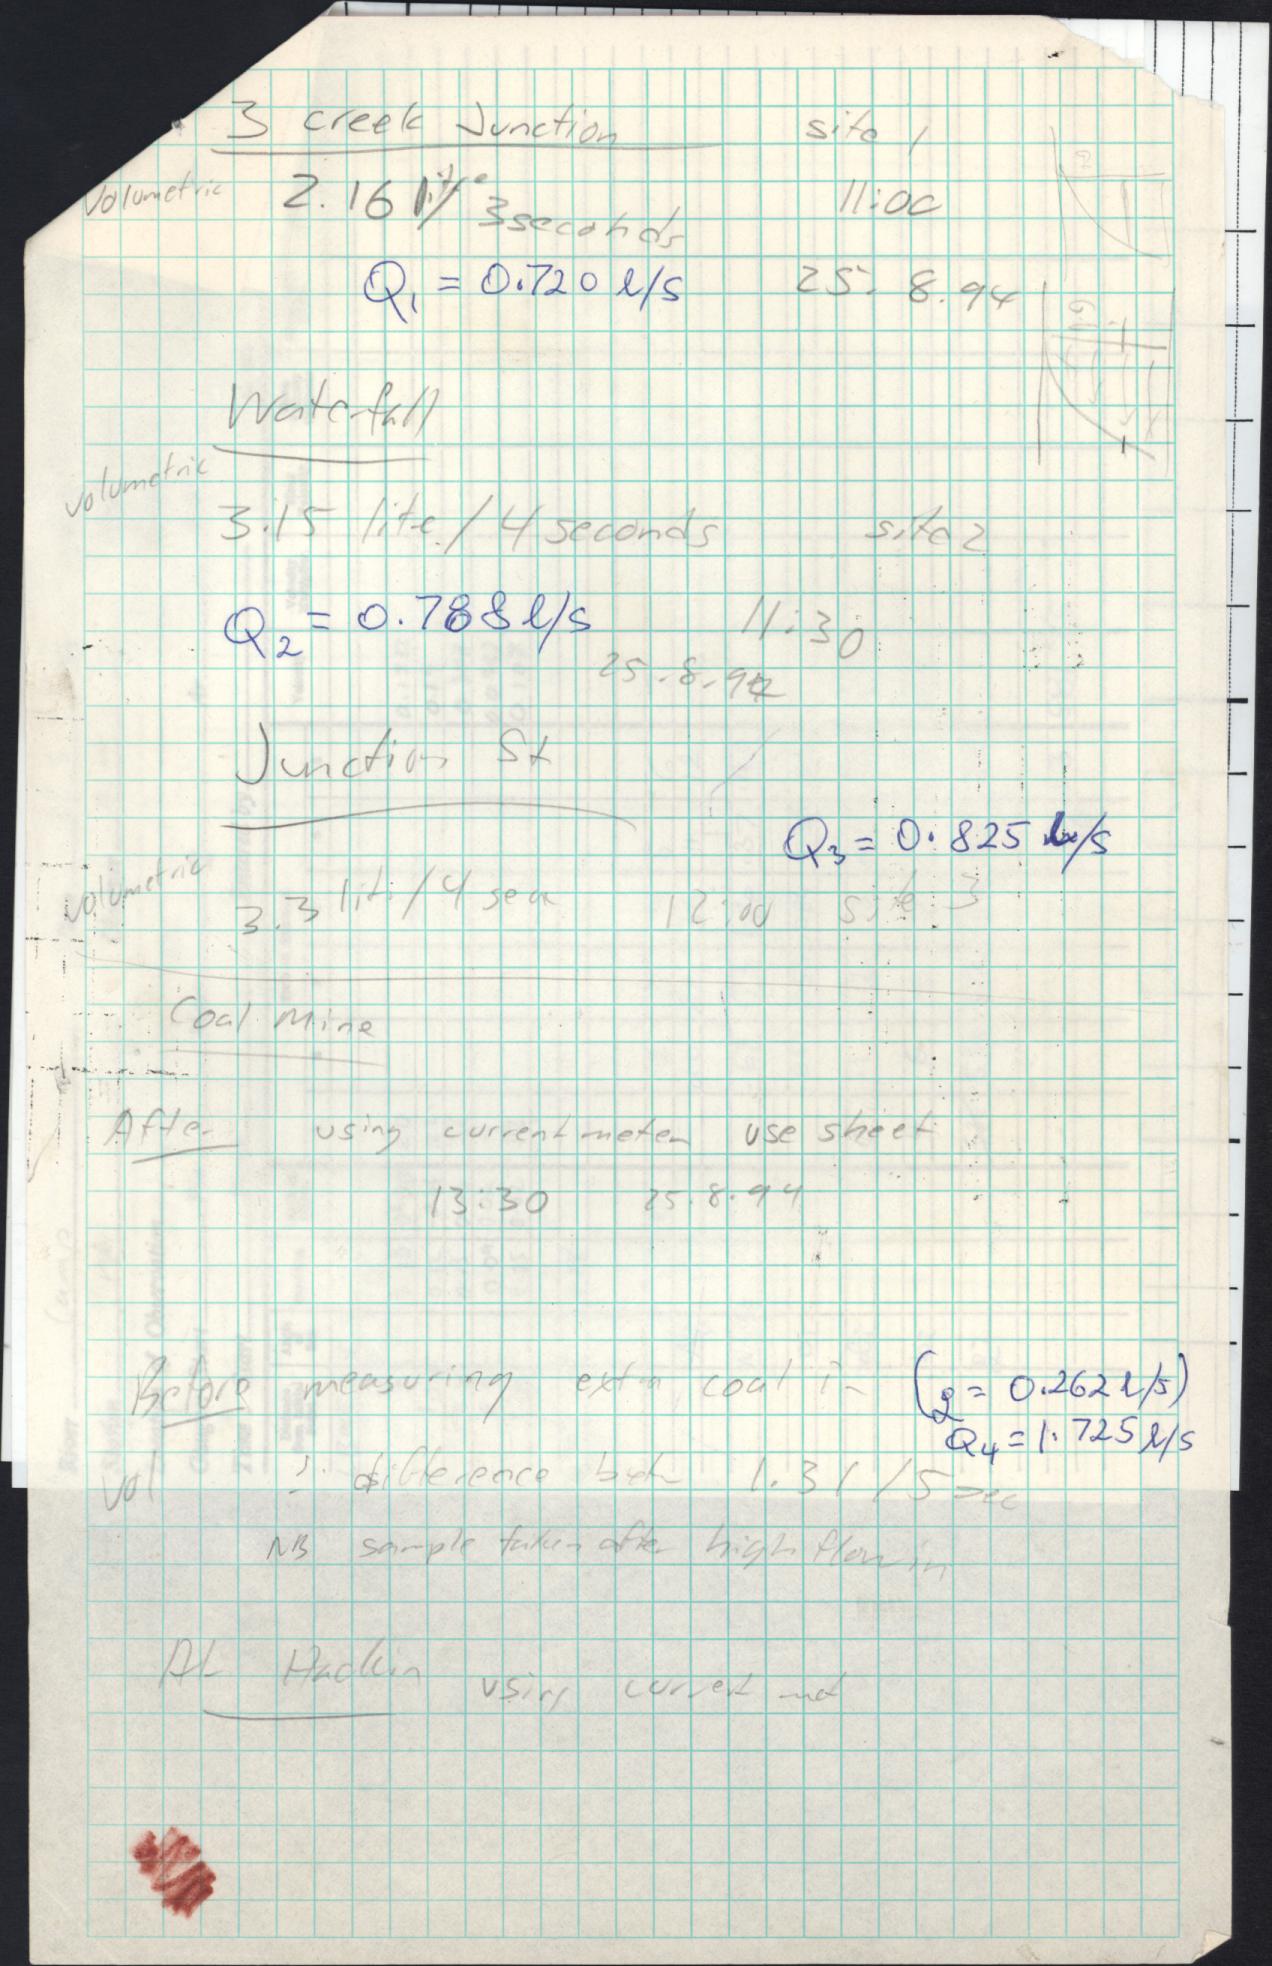 3 creek Junction site 1
Volumetric 2.16 lit/ 3 seconds 11:00
Q1 = 0.720 l/s 25.8.94
Waterfall
volumetric
3.15 lite/4 seconds site 2
Q2 = 0.788 l/s 11:30
25.8.94
Junction St
Q3 = 0.825 l/s
volumetric 3.3 lit/4 sec 12:00 site 3
Coal Mine
After using current meter use sheet
13:30 25.8.94
Before measuring extra coal in (q = 0.262 l/s)
Q4 = 1.725 l/s
Vol ∴ difference betn 1.31/5 sec
NB sample taken after high flow in
At using current met